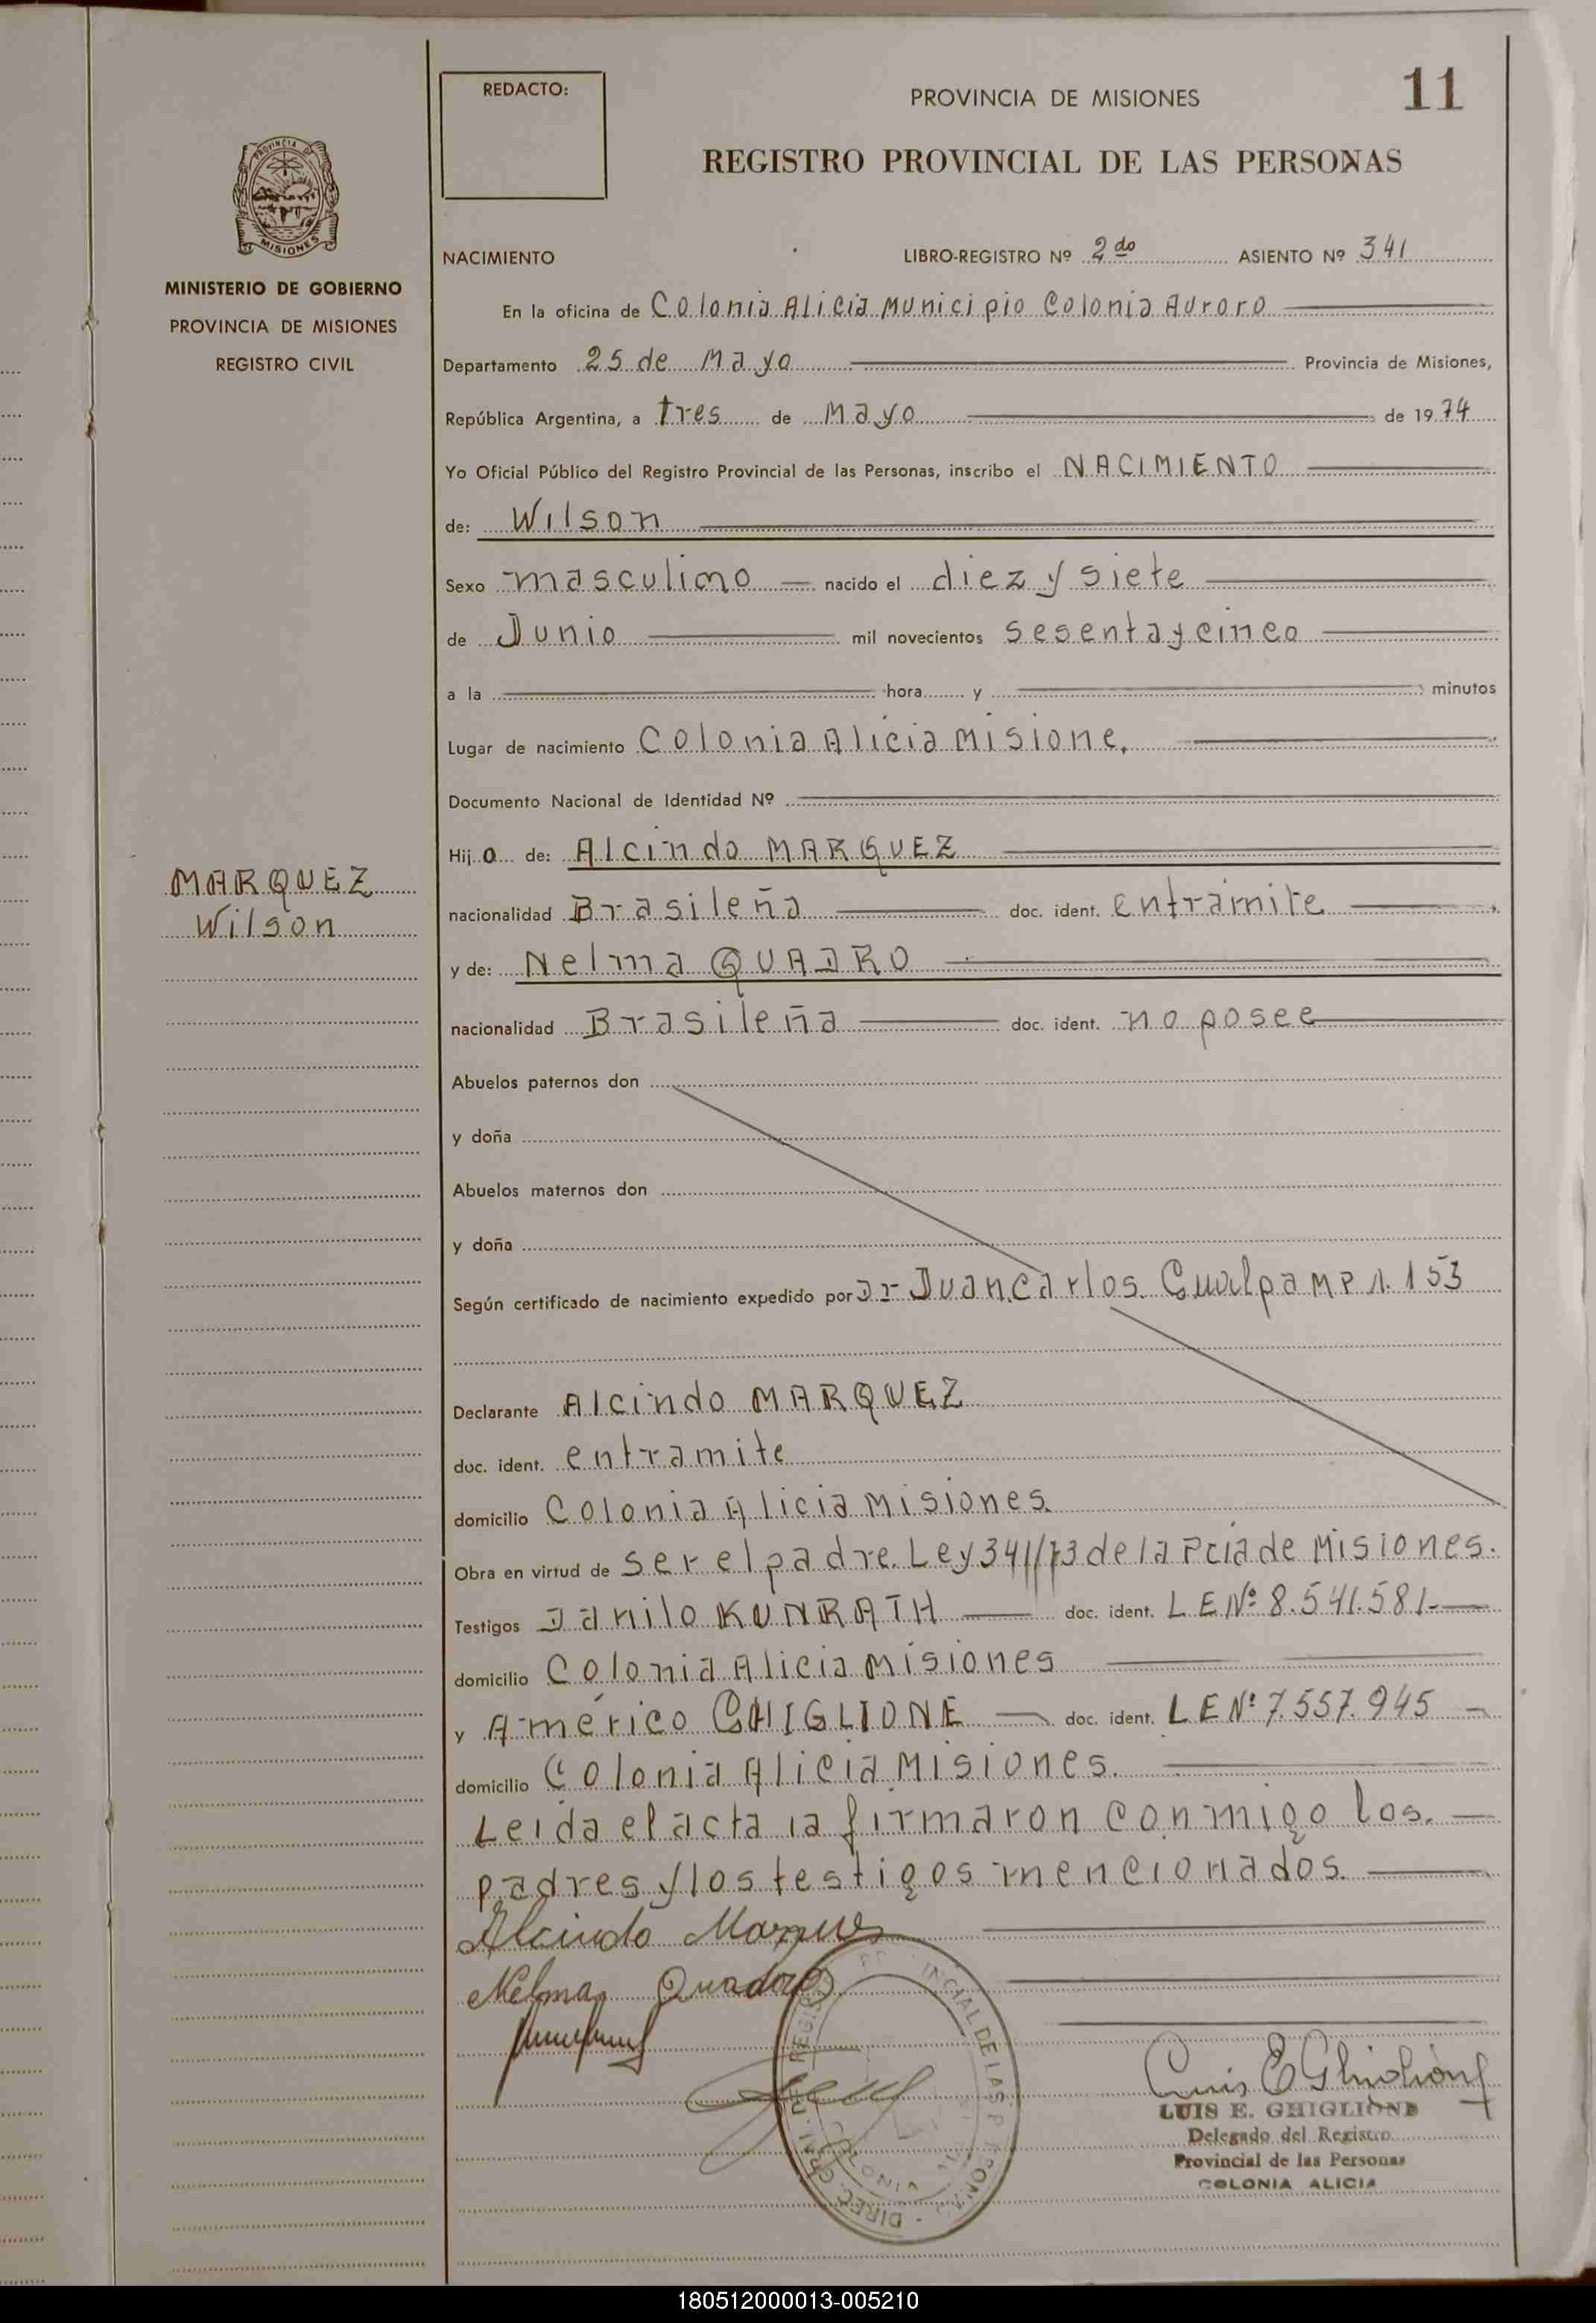 REDACTO:
PROVINCIA DE MISIONES
11
REGISTRO PROVINCIAL DE LAS PERSONAS
PROVINCIA DE
MISIONES
MINISTERIO DE GOBIERNO
PROVINCIA DE MISIONES
REGISTRO CIVIL
NACIMIENTO LIBRO-REGISTRO Nº 2do ASIENTO Nº 341
En la oficina de Colonia Alicia Municipio Colonia Auroro
Departamento 25 de Mayo Provincia de Misiones,
República Argentina, a tres de Mayo de 1974
Yo Oficial Público del Registro Provincial de las Personas, inscribo el NACIMIENTO
de: Wilson
Sexo masculino nacido el diez y siete
de Junio mil novecientos sesenta y cinco
a la hora y minutos
Lugar de nacimiento Colonia Alicia Misione,
Documento Nacional de Identidad Nº
Hijo de: Alcindo MARQUEZ
MARQUEZ
Wilson
nacionalidad Brasileña doc. ident. entramite
y de: Nelma QUADRO
nacionalidad Brasileña doc. ident. no posee
Abuelos paternos don
y doña
Abuelos maternos don
y doña
Según certificado de nacimiento expedido por Dr Juan Carlos Gualpa M P N. 153
Declarante Alcindo MARQUEZ
doc. ident. entramite
domicilio Colonia Alicia Misiones.
Obra en virtud de ser el padre. Ley 341/73 de la Pcia de Misiones.
Testigos Danilo KUNRATH doc. ident. L E Nº 8.541.581.-
domicilio Colonia Alicia Misiones
y Américo GHIGLIONE doc. ident. L E Nº 7.557.945
domicilio Colonia Alicia Misiones.
Leida el acta la firmaron conmigo los.
padres y los testigos mencionados.
Alcindo Marques
Nelma Quadros
Luis E Ghiglione
LUIS E. GHIGLIONE
Delegado del Registro
Provincial de las Personas
COLONIA ALICIA
180512000013-005210